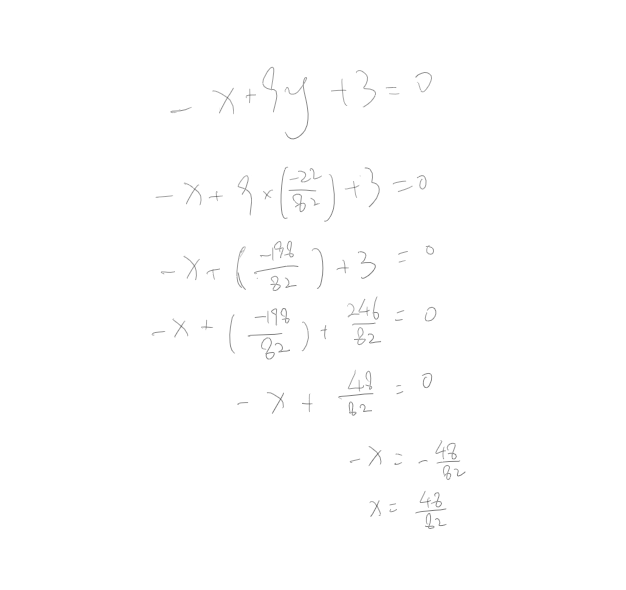 -x+9y+3=0
-x+9×(-22/82)+3=0
-x+(-198/82)+3=0
-x+(-198/82)+246/82=0
-x+48/82=0
-x=-48/82
x=48/82